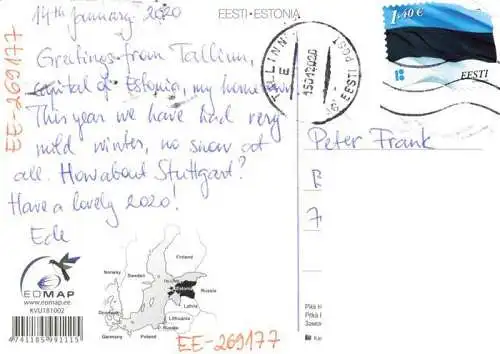 14th January 2020
EESTI • ESTONIA
EE-269177
Greetings from Tallinn,
capital of Estonia, my hometown.
This year we have had very
mild winter, no snow at
all. How about Stuttgart?
Have a lovely 2020!
1.40 €
EESTI
TALLINN
E
EESTI POST
Peter Frank
EOMAP
www.eomap.ee
KVU181002
4741185991115
Norway
Sweden
Finland
Estonia
Russia
Latvia
Lithuania
Russia
Denmark
Germany
Poland
EE-269177